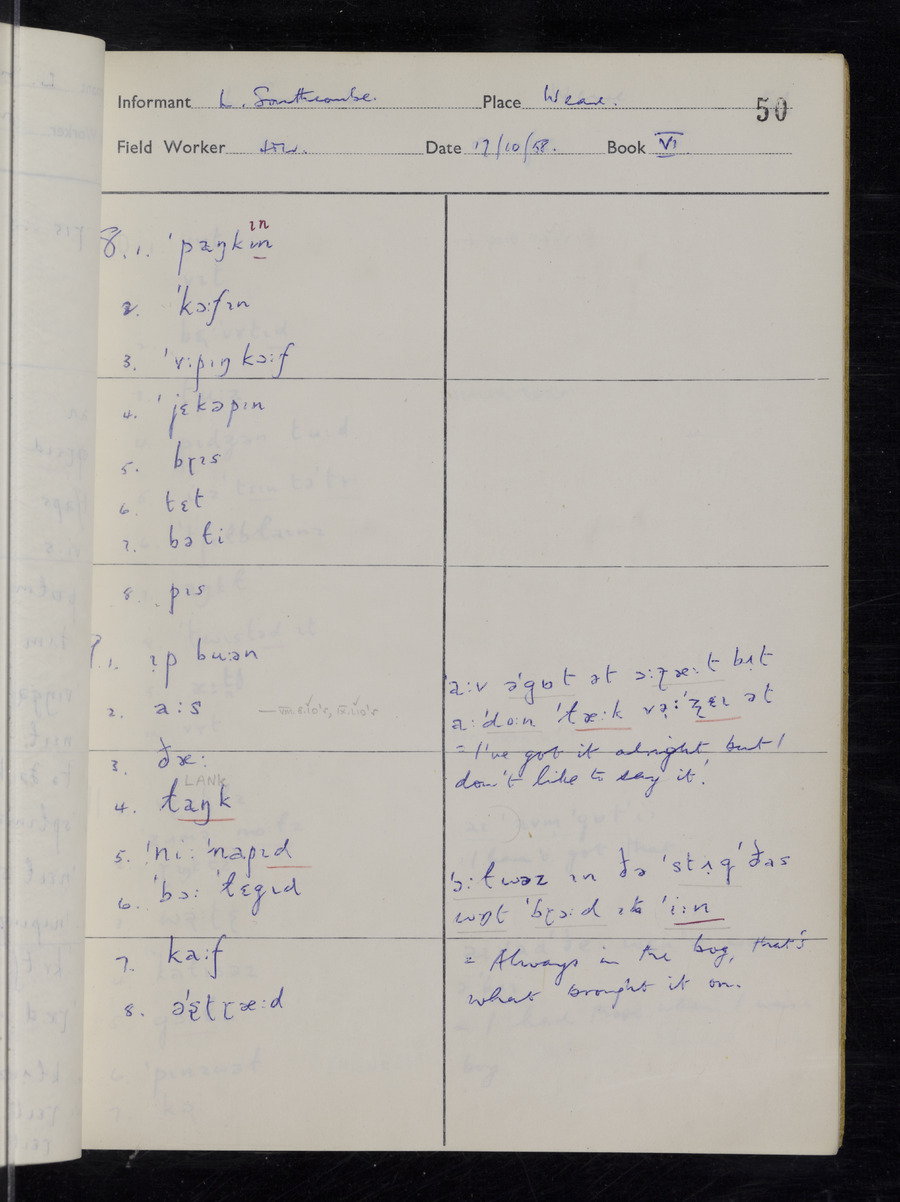 Informant L. Southcombe. Place Weare. 50
Field Worker Date 17/10/58. Book VI
8.1. ˈpæŋkɪn ɪn
2. ˈkɔːfɪn
3. ˈviːpɪŋ kɔːf
4. ˈjɛkəpɪn
5. bɽɪs
6. tɛt
7. bəti
8. pɪs
9.1. ɪp buːən
2. aːs
3. ðæː
LANK
4. ɫaŋk
5. ˈniːˈnapɪd
6. ˈbɔːˈlɛgɪd
7. kaːf
8. əˈʂtɽæːd
aːv əˈgɒt ət ɔːɽæːt bɪt
aːˈdoːn ˈɫæːk
= I've got it alright but I
don't like to say it.
ˈɔːɫwəz ɪn ðə ˈstɪgˈðas
wɒt ˈbɽɔːd ɪt ˈiːn
= Always in the bog, that's
what brought it on.